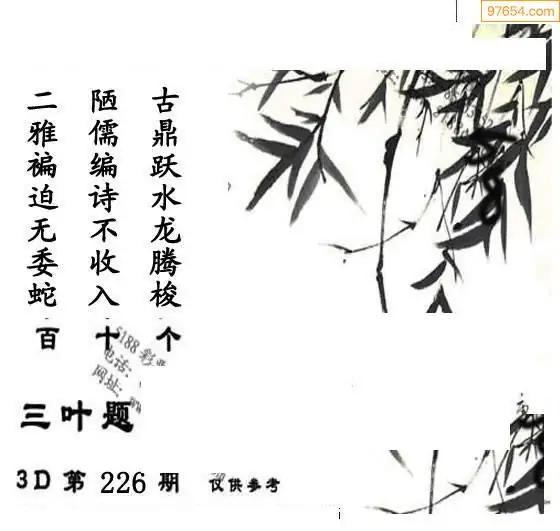 97654.com
古鼎跃水龙腾梭·个
陋儒编诗不收入·十
二雅褊迫无委蛇·百
5188 彩
电话:
网址:
三叶题
3D 第 226 期 仅供参考